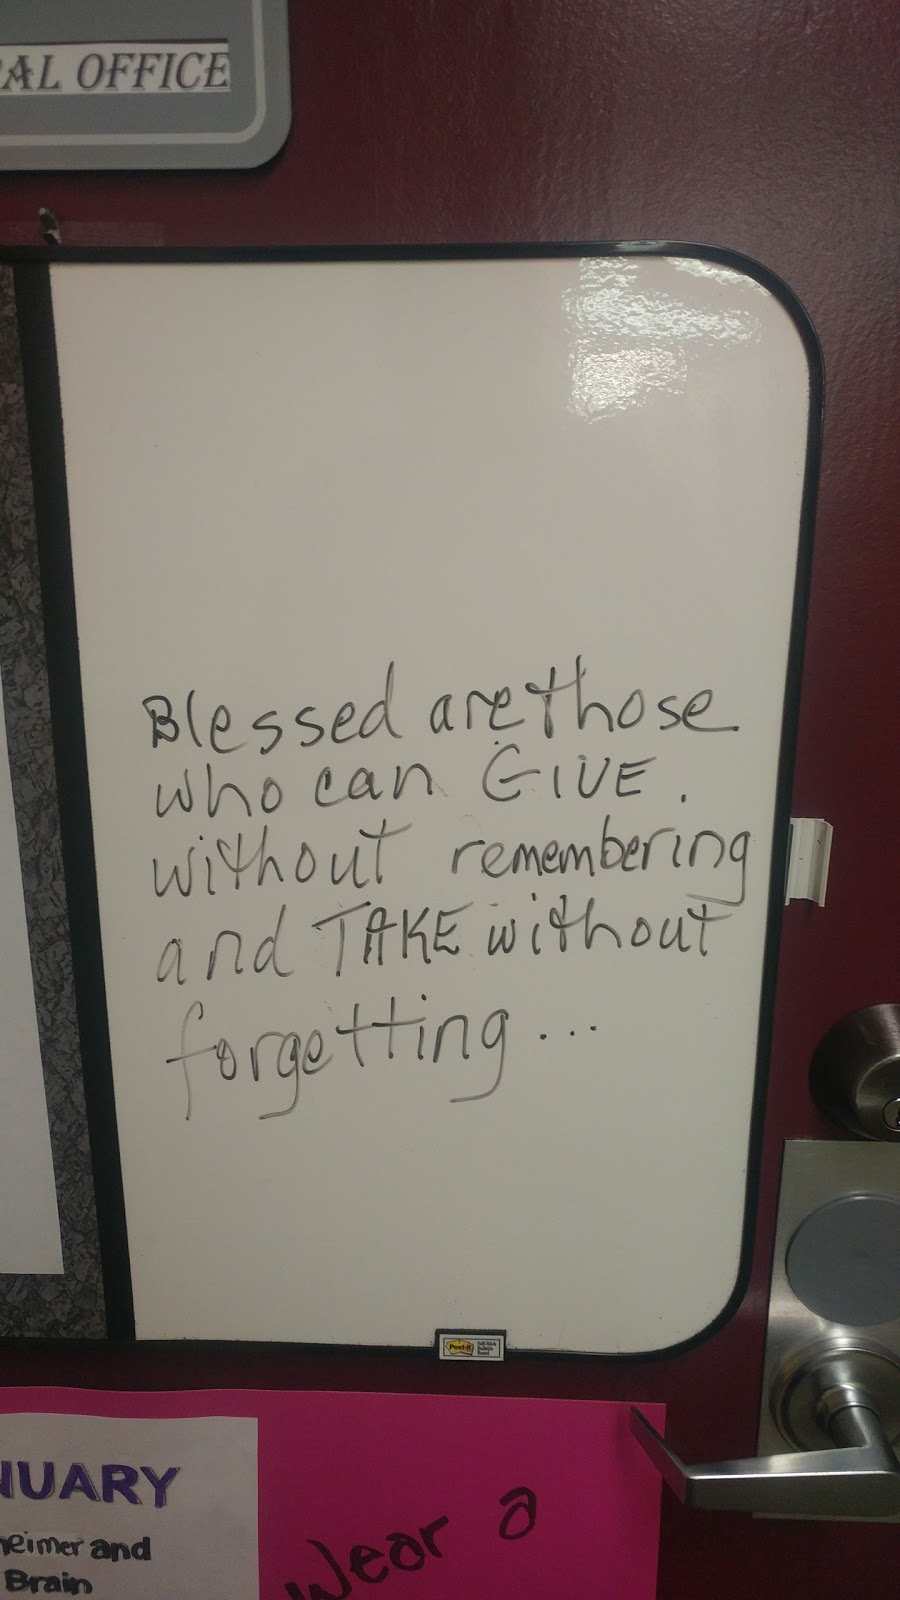 OFFICE
Blessed are those
who can GIVE.
without remembering
and TAKE without
forgetting...
Post-it
and
Brain
Wear a